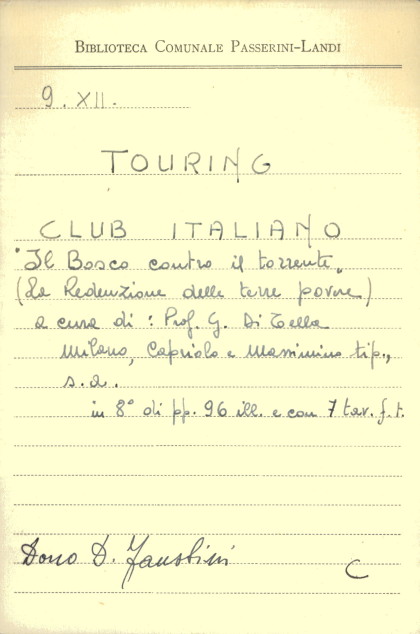 BIBLIOTECA COMUNALE PASSERINI-LANDI
9. XII.
TOURING
CLUB ITALIANO
"Il Bosco contro il torrente"
(La Redenzione delle terre povere)
a cura di : Prof. G. Di Tella
Milano, Capriolo e Massimino tip.,
s.a.
in 8° di pp. 96 ill. e con 7 tav. f.t.
Dono D. Faustini
C